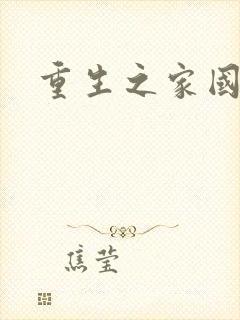 重生之家國
焦莹